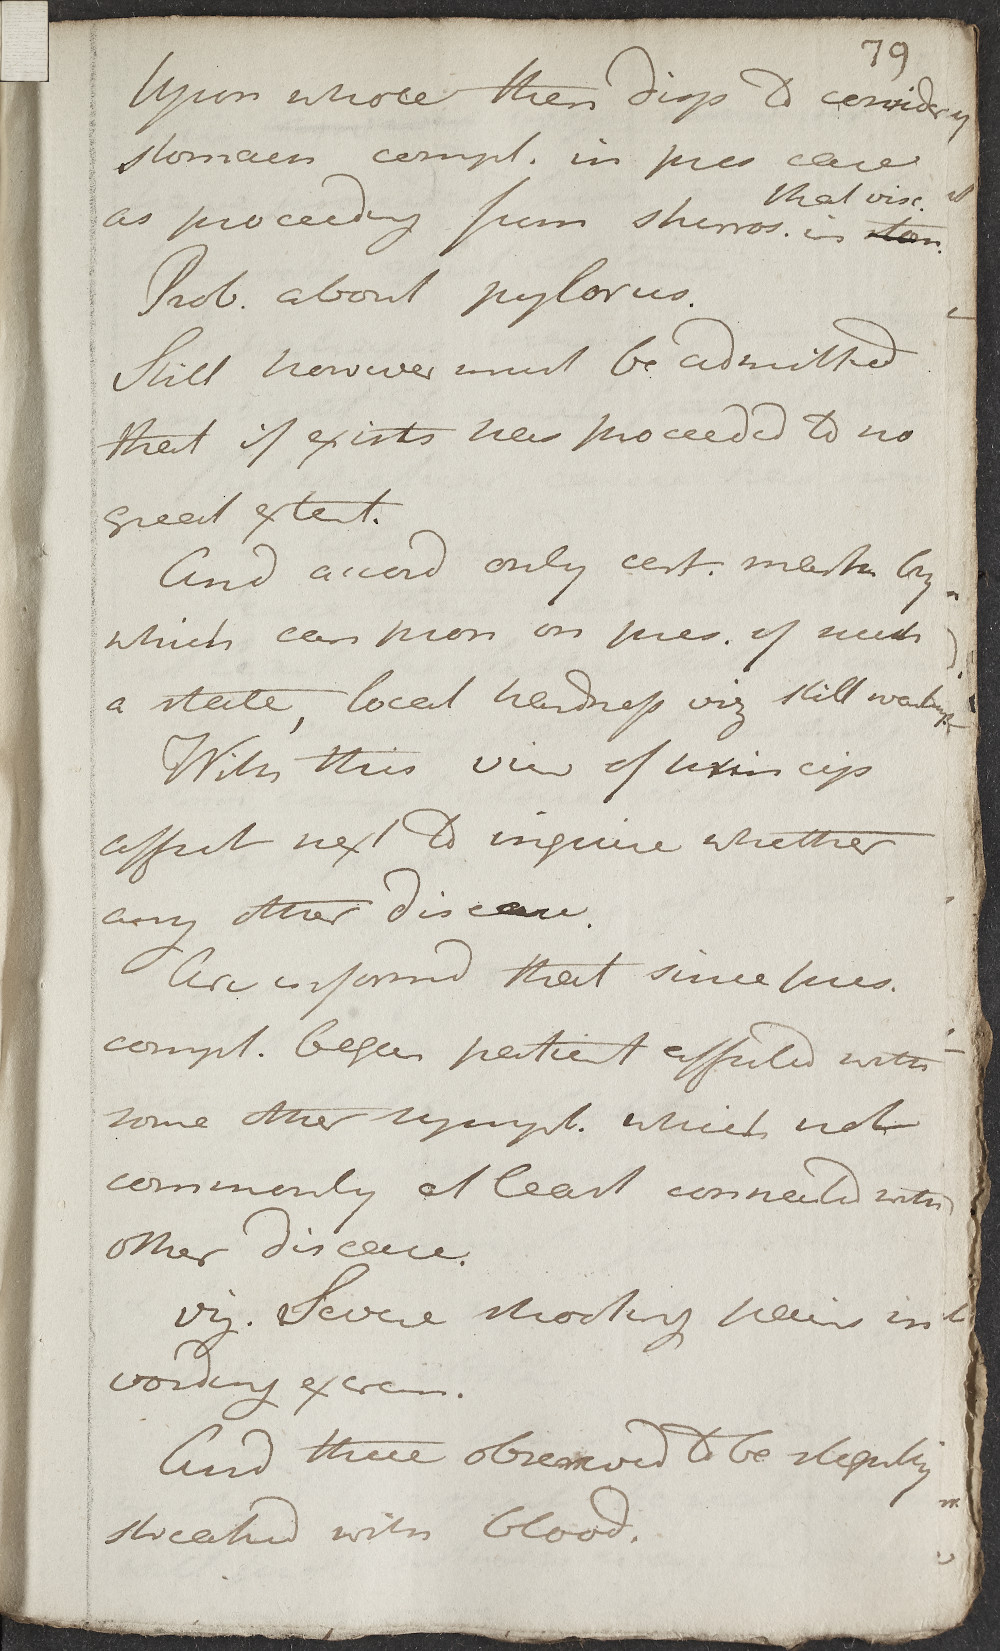 79
Upon whole then disp to consider y
stomach compl. in pres case
as proceeding from shirros. in that visc. ~~stom.~~
Prob. about pylorus.
Still however must be admitted
that if exists has proceeded to no
great extent.
And accord only cert. mark by
which can pron on pres. of such
a state, local hardness viz still wanting
With this view of princip
affect next to inquire whether
any other disease.
Are informd that since pres.
compl. began patient affected with
some other sympt. which not
commonly at least connected with
other disease.
viz. Severe shooting pains in
voiding excrem.
And these observed to be slightly
streaked with blood.